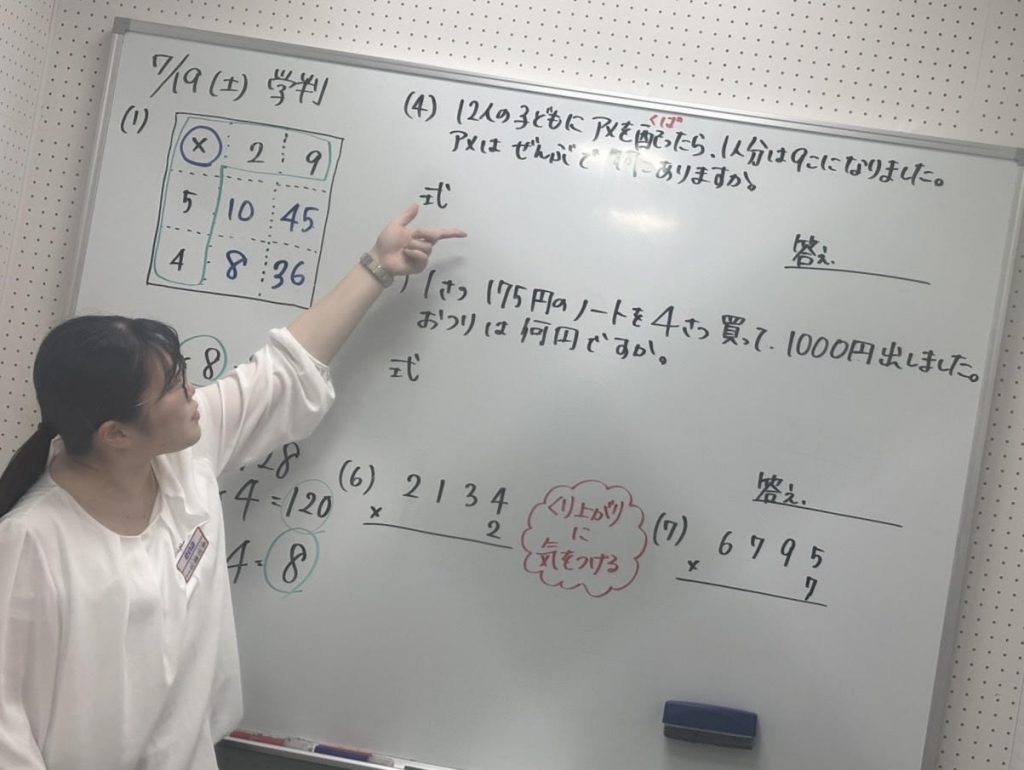 7/19(土) 学判
(1)
× 2 9
5 10 45
4 8 36
8
28
4 = 120
4 = 8
(4) 12人の子どもに アメを配ったら、1人分は9こになりました。
くば
アメは ぜんぶで ありますか。
式
答え.
1さつ 175円のノートを4さつ買って、1000円出しました。
おつりは何円ですか。
式
答え.
(6) 2134
× 2
くり上がり
に
気をつける
(7) 6795
× 7